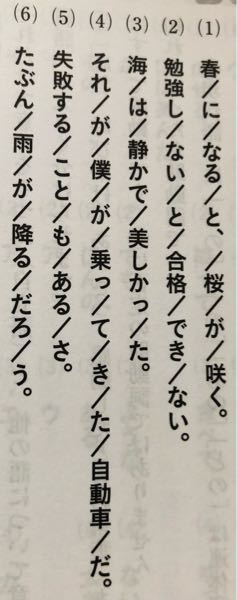 (1) 春/に/なる/と、/桜/が/咲く。
(2) 勉強し/ない/と/合格/でき/ない。
(3) 海/は/静かで/美しかっ/た。
(4) それ/が/僕/が/乗っ/て/き/た/自動車/だ。
(5) 失敗する/こと/も/ある/さ。
(6) たぶん/雨/が/降る/だろ/う。